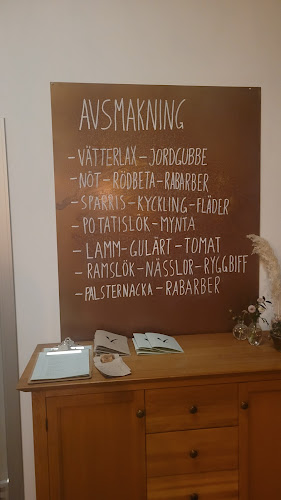 AVSMAKNING
- VÄTTERLAX - JORDGUBBE
- NÖT - RÖDBETA - RABARBER
- SPARRIS - KYCKLING - FLÄDER
- POTATISLÖK - MYNTA
- LAMM - GULÄRT - TOMAT
- RAMSLÖK - NÄSSLOR - RYGGBIFF
- PALSTERNACKA - RABARBER